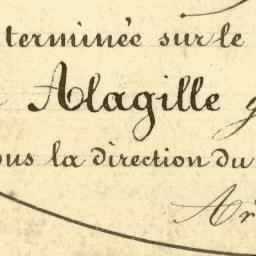 terminée sur le
Alagille
ous la direction du
Ar